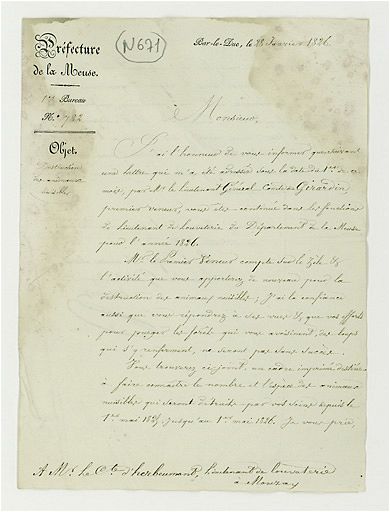 Préfecture
de la Meuse.
N671
Bar-le-Duc, le 28 Janvier 1826.
1er Bureau
N.º 722
Objet.
Destruction
des animaux
nuisibles
à Monsieur,
J'ai l'honneur de vous informer que suivant
une lettre qui m'a été adressée sous la date du 1er de ce
mois, par Mr le lieutenant Général Comte de Girardin
premier veneur, vous êtes continué dans les fonctions
de lieutenant de louveterie du Département de la Meuse
pour l'année 1826.
Mr. le Premier Veneur compte sur le zèle &
l'activité que vous apporterez de nouveau pour la
destruction des animaux nuisibles; J'ai la confiance
aussi que vous répondrez à ses vues & que vos efforts
pour purger les forêts qui vous avoisinent, des loups
qui s'y renferment, ne seront pas sans succès.
Vous trouverez ci-joint, un cadre imprimé destiné
à faire connaître le nombre et l'espèce des animaux
nuisibles qui seront détruits par vos soins depuis le
1er mai 1825, jusqu'au 1er mai 1826. Je vous prie,
A Mr. le Cte d'herbeumont, Lieutenant de louveterie
à Mouzay